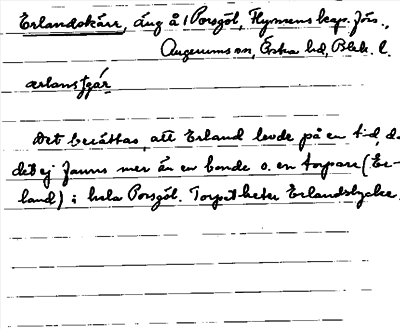 Erlandskärr, äng å 1 Porsgöl, Flymens kap. förs.,
Augerums sn, Östra hd, Blek. l.
ærlansҫär
Det berättas, att Erland levde på en tid, d.
det ej fanns mer än en bonde o. en torpare (Er-
land) i hela Porsgöl. Torpet heter Erlandslycke.